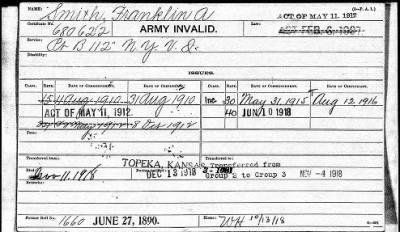 NAME: Smith, Franklin A (3—P. A. I.)
CERTIFICATE No. 680622 ARMY INVALID. ACT OF MAY 11, 1912
LAW:
SERVICE: Pt B 112" N.Y.V.I.
DISABILITY:
ISSUES.
CLASS. RATE. DATE OF COMMENCEMENT. DATE OF CERTIFICATE. CLASS. RATE. DATE OF COMMENCEMENT. DATE OF CERTIFICATE.
15 11 Aug 1910 31 Aug 1910 Inc 30 May 31 1915 Aug 12, 1916
ACT OF MAY 11, 1912. 40 JUN 10 1918
May 1912 8 Dec 1912
Transferred to TOPEKA, KANSAS Transferred from
Died Nov 11, 1918 DEC 13 1918 Group 2 to Group 3 NOV -4 1918
Former Roll No. 1660 JUNE 27, 1890. Home: WH 10/13/18